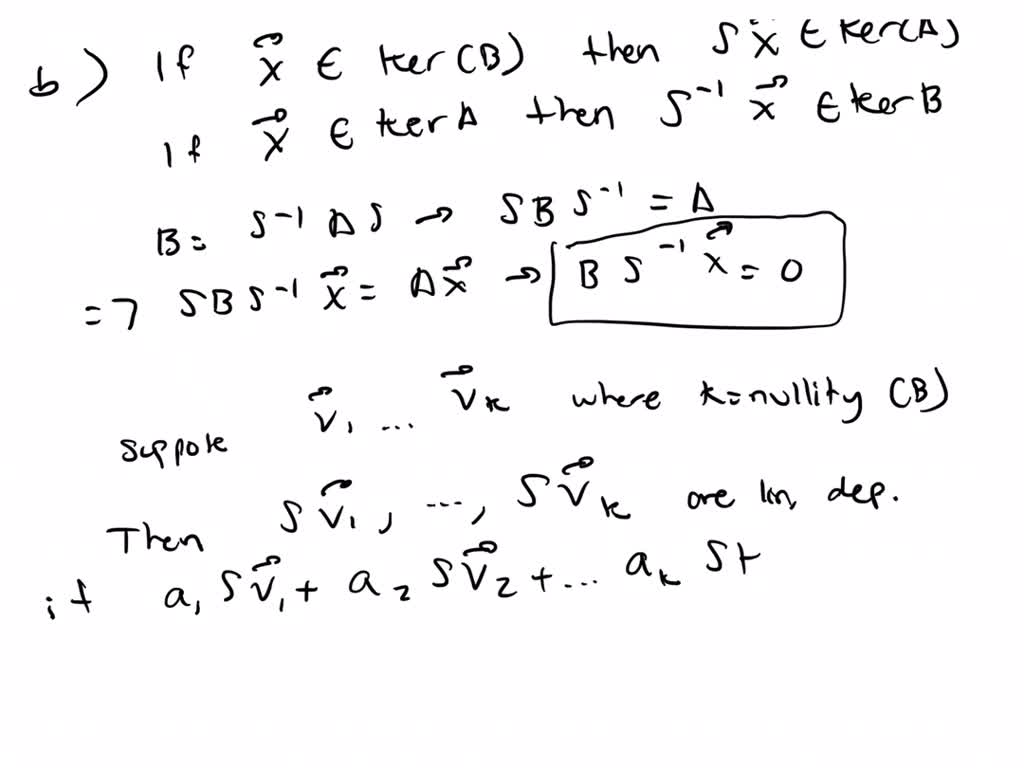 b) If x⃗ ∈ ker(B) then S x⃗ ∈ ker(A)
If x⃗ ∈ ker A then S⁻¹ x⃗ ∈ ker B
B = S⁻¹ A S → S B S⁻¹ = A
=> S B S⁻¹ x⃗ = A x⃗ → B S⁻¹ x⃗ = 0
Suppose v⃗₁ ... v⃗ₖ where k=nullity (B)
Then S v⃗₁, ..., S v⃗ₖ are lin, dep.
if a₁ S v⃗₁ + a₂ S v⃗₂ + ... aₖ S